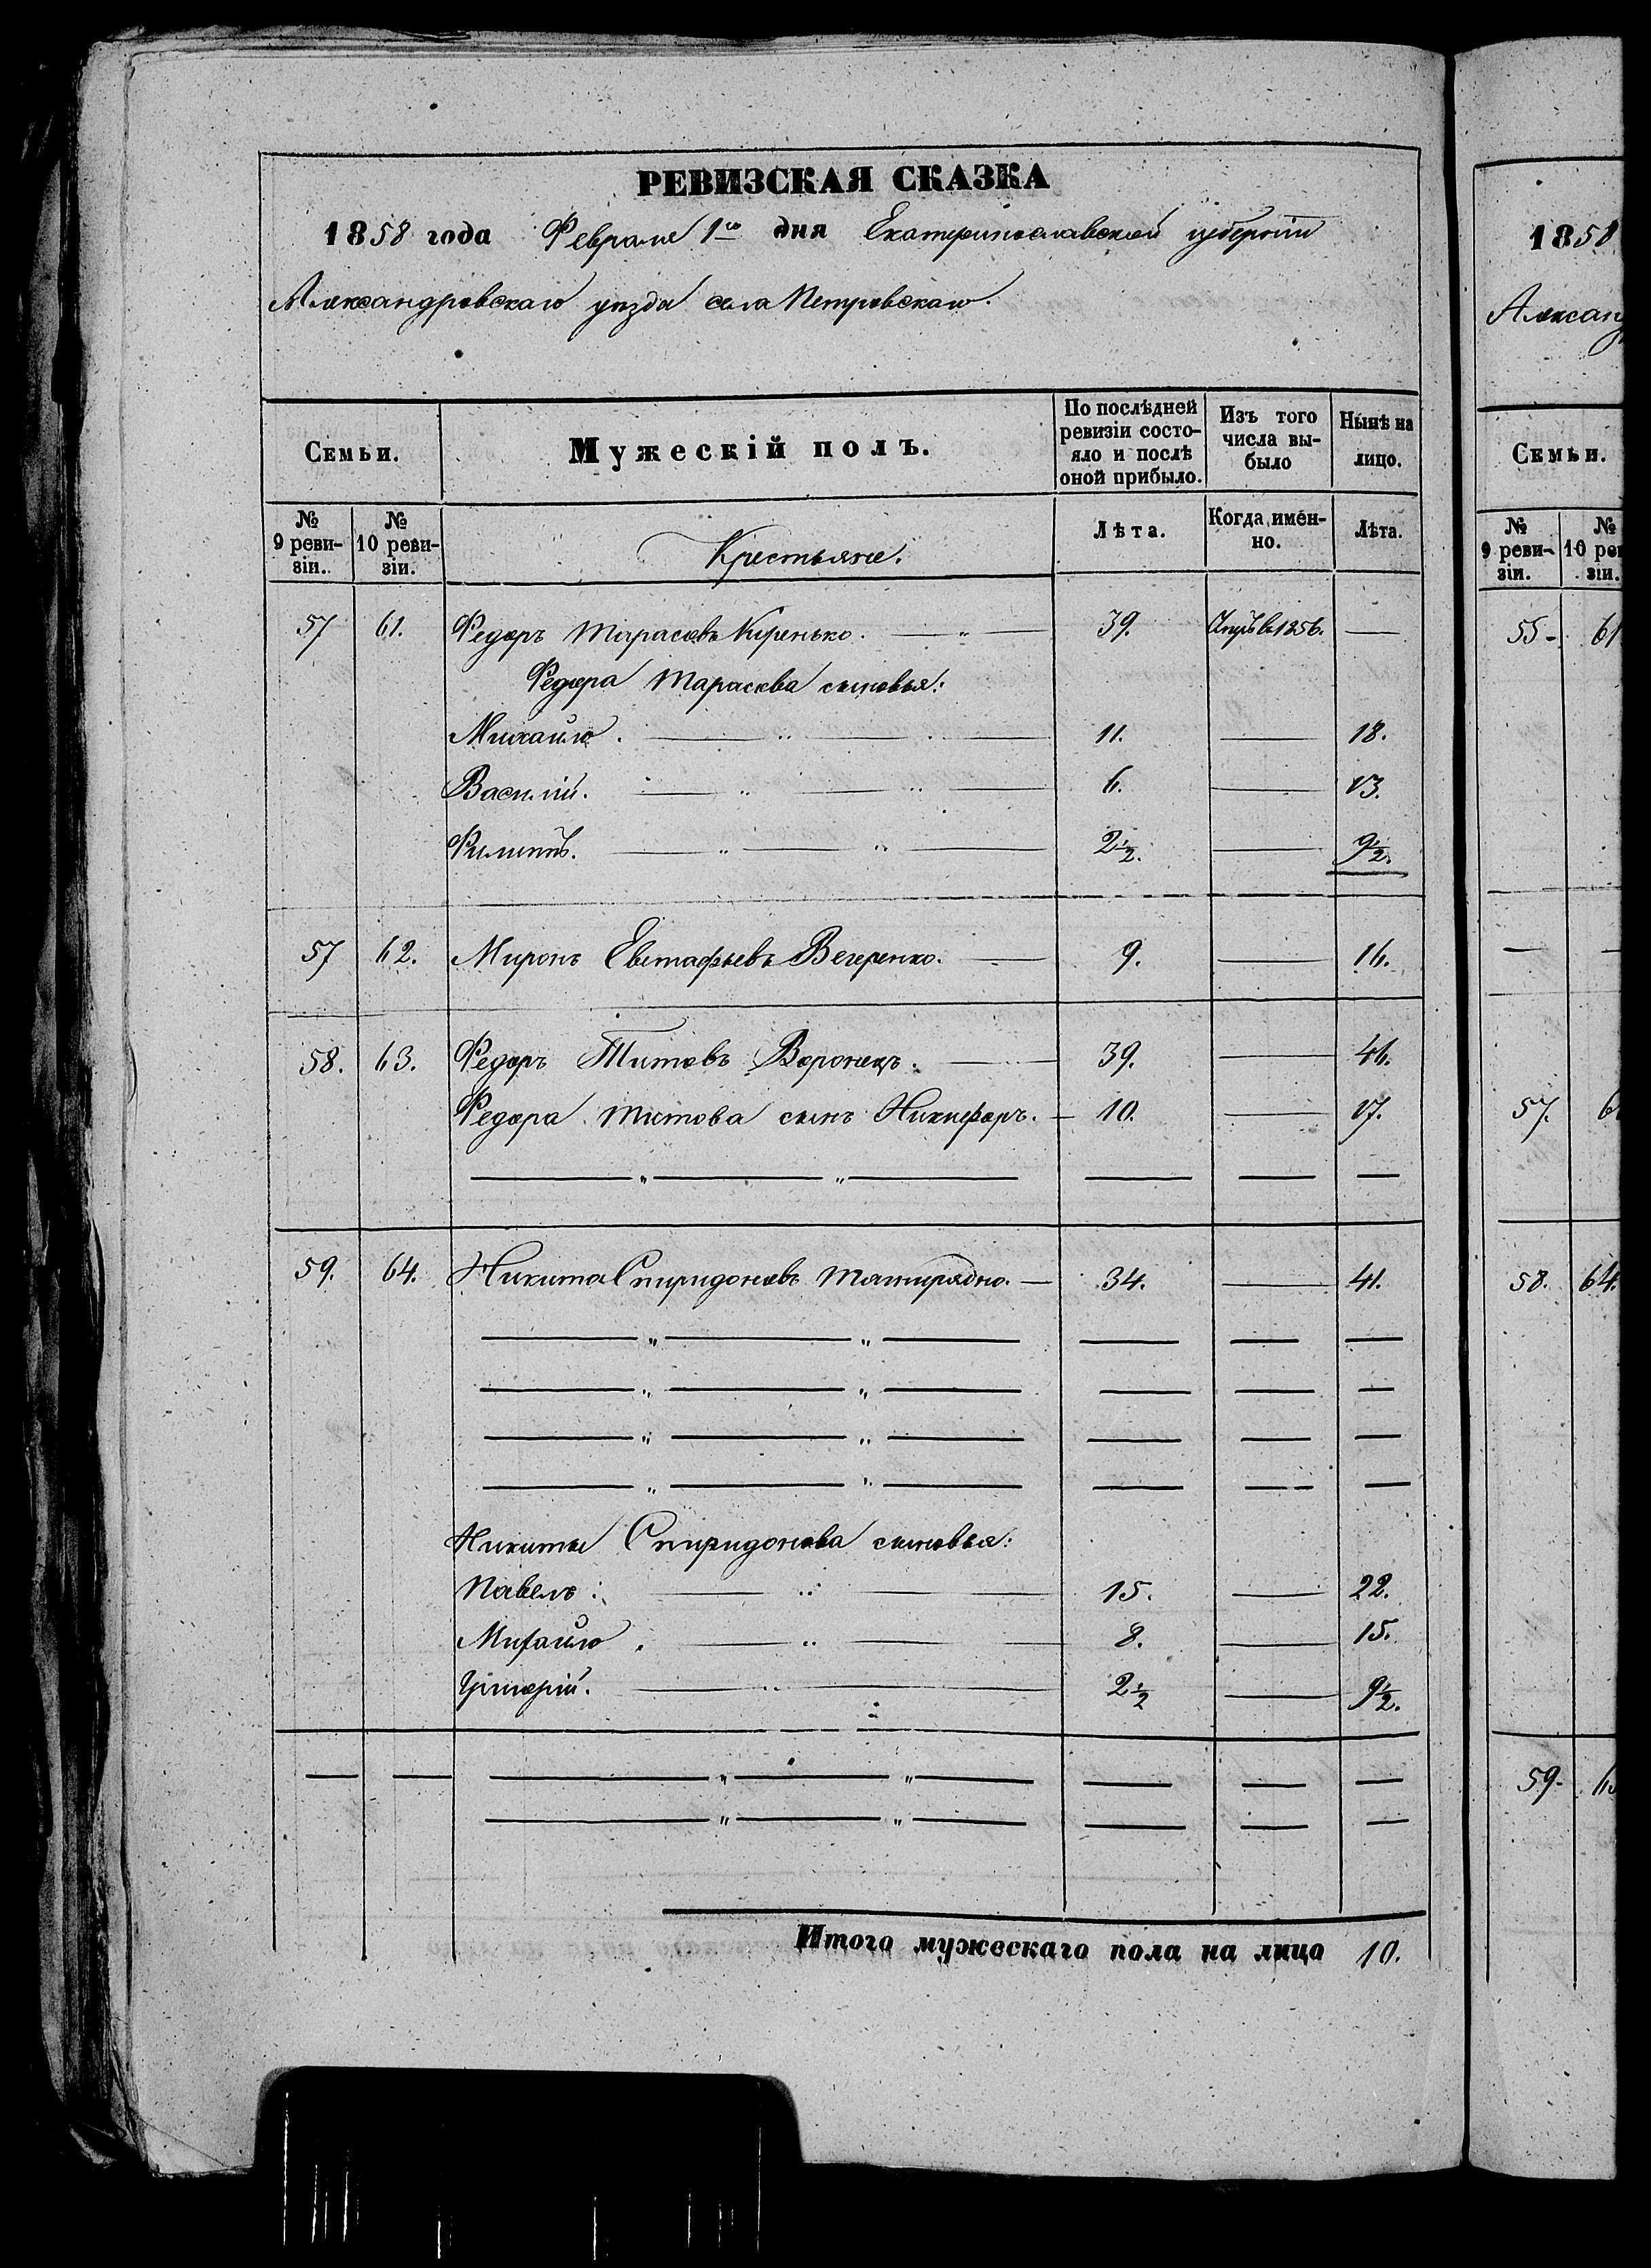 РЕВИЗСКАЯ СКАЗКА
1858 года Февраля 1го дня Екатеринославской губерніи
Александровскаго уѣзда села Петровскаго.
Семьи. Мужескій полъ. По послѣдней ревизіи состояло и послѣ оной прибыло. Изъ того числа выбыло Нынѣ на лицо.
№ 9 ревизіи. № 10 ревизіи. Крестьяне. Лѣта. Когда именно. Лѣта.
57 61. Федоръ Тарасовъ Киренько. — „ — 39. 1856. —
Федора Тарасова сыновья:
Михайло. — „ — 11. — 18.
Василій. — „ — „ — 6. — 13.
Филиппъ. — „ — „ — 2½. — 9½.
57 62. Миронъ Евстафьевъ Вегеренко. — 9. — 16.
58. 63. Федоръ Титовъ Воронецъ. — 39. — 46.
Федора Титова сынъ Никифоръ. — 10. — 17.
— „ — „ — — — —
59. 64. Никита Спиридоновъ — 34. — 41.
— „ — „ — — — —
— „ — „ — — — —
— „ — „ — — — —
— „ — „ — — — —
Никиты Спиридонова сыновья:
Павелъ: — „ — 15. — 22.
Михайло. — „ — 8. — 15.
Григорій. — „ — 2½ — 9½.
— — — „ — „ — — — —
— „ — „ — — — —
Итого мужескаго пола на лицо 10.
1858
Алексан
Семьи.
№ 9 ревизіи. № 10 рев зіи.
55 - 61
— —
57. 6
58. 64.
59-